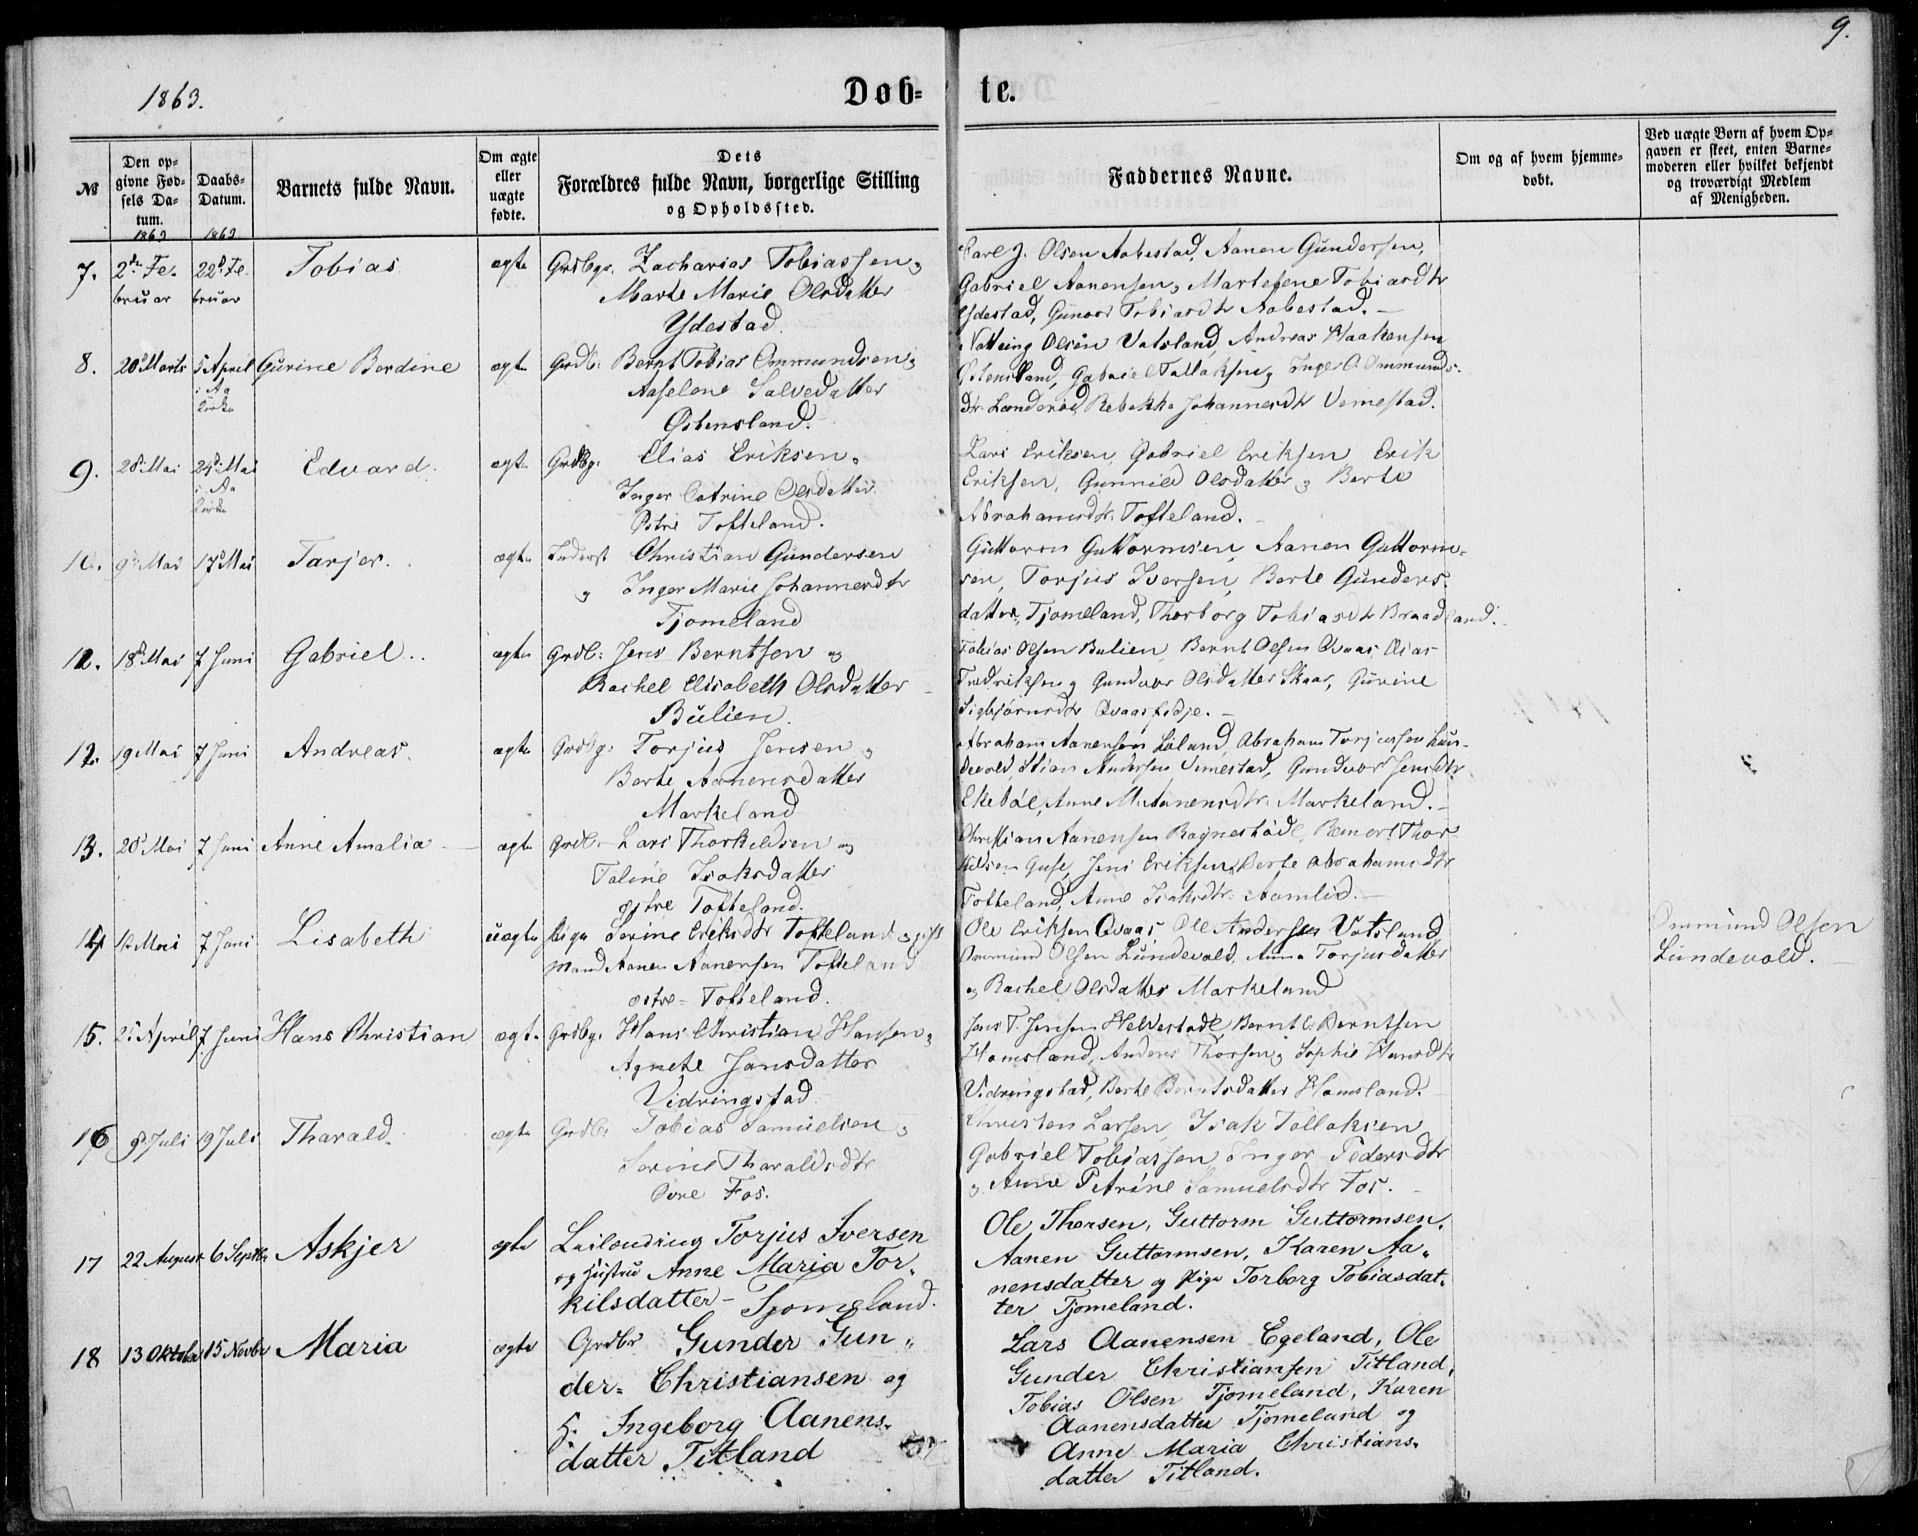 9.
1863.
Døb-te.
№
Den opgivne Fødsels Datum. 1863
Daabs-Datum. 1863
Barnets fulde Navn.
Om ægte eller uægte fødte.
Dets Forældres fulde Navn, borgerlige Stilling og Opholdssted.
Faddernes Navne.
Om og af hvem hjemmedøbt.
Ved uægte Børn af hvem Opgaven er skeet, enten Barnemoderen eller hvilket bekjendt og troværdigt Medlem af Menigheden.
7. 2den Februar 22d Februar Tobias ægte Grdbgr. Zacharias Tobiassen og
Marte Marie Olsdatter
Ydestad.
Carl J. Olsen Aabestad, Aanen Gundersen,
Gabriel Aanensen, Martefene Tobiasdtr
Ydestad, Gunvor Tobiasdtr Aabestad.
8. 20 Marts 5 April i Aa Kirke Gurine Berdine ægte Grdb: Bernt Tobias Ommundsen og
Aaselene Salvedatter
Østensland.
Olsen Vatsland, Andreas Haakensen
Østensland, Gabriel Tallaksen og Inger O. Ommunds-
dtr. Landerød, Rebekka Johannesdtr Vemestad.
9. 28 Mai i Aa Kirke Edvard. ægte Grdbg: Elias Eriksen og
Inger Catrine Olsdatter
Østre Tofteland.
Lars Eriksen, Gabriel Eriksen Erik
Eriksen, Gunnild Olsdatter og Berte
Abrahamsdtr. Tofteland.
10. 9 Mai 17 Mai Tarjer. ægte Inderst Christian Gundersen
og Inger Marie Johannesdtr
Tjomeland
Guttorm Guttormsen, Aanen Guttorm-
sen, Torjus Iversen, Berte Gunders-
datter, Tjomeland, Thorborg Tobiasdtr Braadland.
18 Mai 7 Juni Gabriel. ægte Grdb: Jens Berntsen og
Rachel Elisabeth Olsdatter
Bulien.
Tobias Olsen Bulien, Bernt Olsen Qvaas, Osias
Fredriksen og Gundvor Olsdatter Skaar, Gurine
Sigbjørnsdtr Qvaasfidje.
12. 19 Mai 7 Juni Andreas. ægte Grdbg: Torjus Jensen og
Berte Aanensdatter
Markeland
Abraham Aanensen Løland, Abraham Torjussen Lun-
devold, Stian Andersen Vemestad, Gundvor Jensdtr
Ekebøl, Anne M. Aanensdtr. Markeland.
13. 20 Mai 7 Juni Anne Amalia ægte Grdb: Lars Thorkeldsen og
Taline Isaksdatter
østre Tofteland.
Christian Aanensen Ragnestøde, Remert Thor-
keldsen Guse, Jens Eriksen, Berte Abrahamsdtr
Tofteland, Anne Isaksdtr. Aamlid.
14 12 Mai 7 Juni Lisabeth uægte Pige Serine Eriksdtr Tofteland og gift
Mand Aanen Aanensen Tofteland
østre Tofteland.
Ole Eriksen Qvaas, Ole Andersen Vatsland
Ommund Olsen Lundevold, Anna Torjusdatter
og Rachel Olsdatter Markeland
Ommund Olsen
Lundevold.
15. April 7 Juni Hans Christian ægte Grdbg: Hans Christian Hansen og
Agnete Jansdatter
Vidringstad
Jens T. Jensen Helvestade, Bernt C. Berntsen
Homsland, Anders Thorsen og Sophie Hansdtr
Vidringstad, Berte Berntsdatter Homsland.
16 9 Juli 19 Juli Tharald. ægte Grdb: Tobias Samuelsen og
Serine Tharaldsdtr
Øvre Fos.
Christen Larsen, Isak Tallaksen
Gabriel Tobiassen, Inger Pedersdtr
og Anne Petrine Samuelsdtr Fos.
17 22 August 6 Septbr Askjer ægte Leilænding Torjus Iversen
og Hustru Anne Maria Tor-
kilsdatter - Tjomeland.
Ole Thorsen, Guttorm Guttormsen,
Aanen Guttormsen, Karen Aa-
nensdatter og Pige Torborg Tobiasdat-
ter Tjomeland.
18 13 Oktober 15 Novbr Maria ægte Grdbr Gunder Gun-
der- Christiansen og
H. Ingeborg Aanens-
datter Titland
Lars Aanensen Egeland, Ole
Gunder Christiansen Titland,
Tobias Olsen Tjomeland, Karen
Aanensdatter Tjomeland og
Anne Maria Christians-
datter Titland.